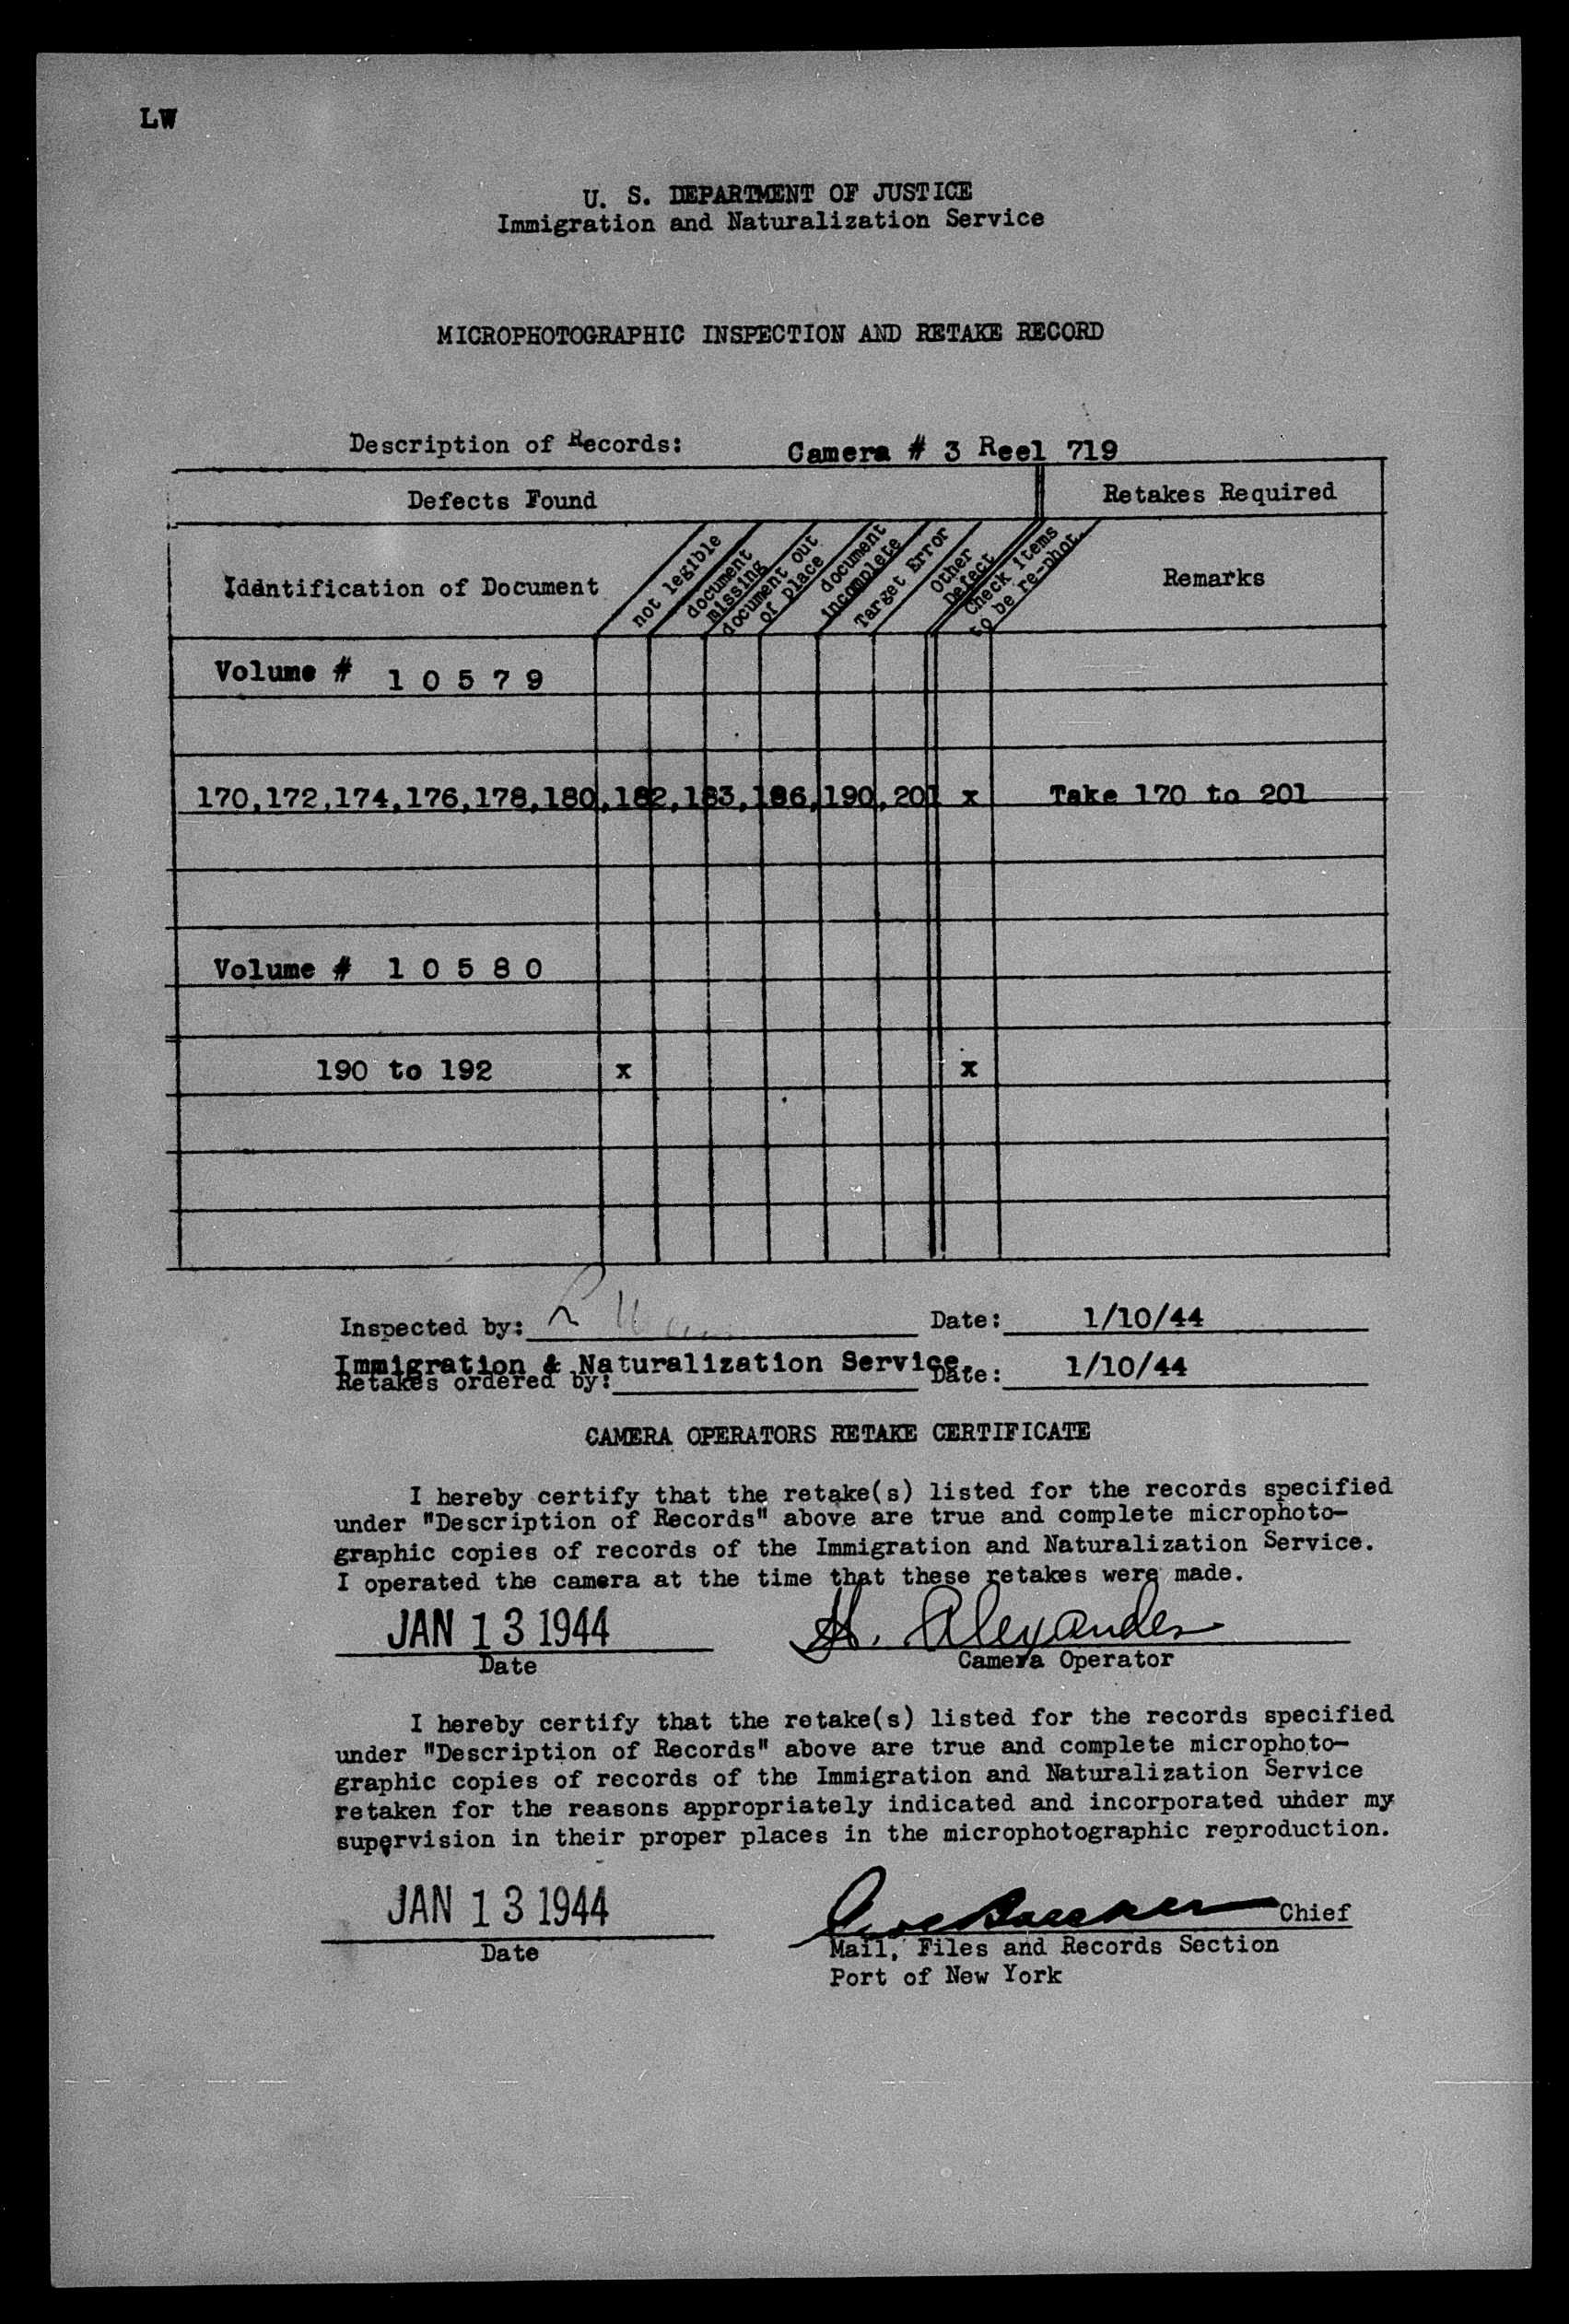 LW
U. S. DEPARTMENT OF JUSTICE
Immigration and Naturalization Service
MICROPHOTOGRAPHIC INSPECTION AND RETAKE RECORD
Description of Records: Camera # 3 Reel 719
Defects Found Retakes Required
Identification of Document
not legible
document
missing
document out
of place
document
incomplete
Target Error
Other
Defect
Check items
to be re-phot.
Remarks
Volume # 1 0 5 7 9
170,172,174,176,178,180,182,183,186,190,201 x Take 170 to 201
Volume # 1 0 5 8 0
190 to 192 x x
Inspected by: Date: 1/10/44
Immigration & Naturalization Service.
Retakes ordered by: Date: 1/10/44
CAMERA OPERATORS RETAKE CERTIFICATE
I hereby certify that the retake(s) listed for the records specified
under "Description of Records" above are true and complete microphoto-
graphic copies of records of the Immigration and Naturalization Service.
I operated the camera at the time that these retakes were made.
JAN 13 1944 H. Alexander
Date Camera Operator
I hereby certify that the retake(s) listed for the records specified
under "Description of Records" above are true and complete microphoto-
graphic copies of records of the Immigration and Naturalization Service
retaken for the reasons appropriately indicated and incorporated under my
supervision in their proper places in the microphotographic reproduction.
JAN 13 1944 Chief
Date Mail, Files and Records Section
Port of New York